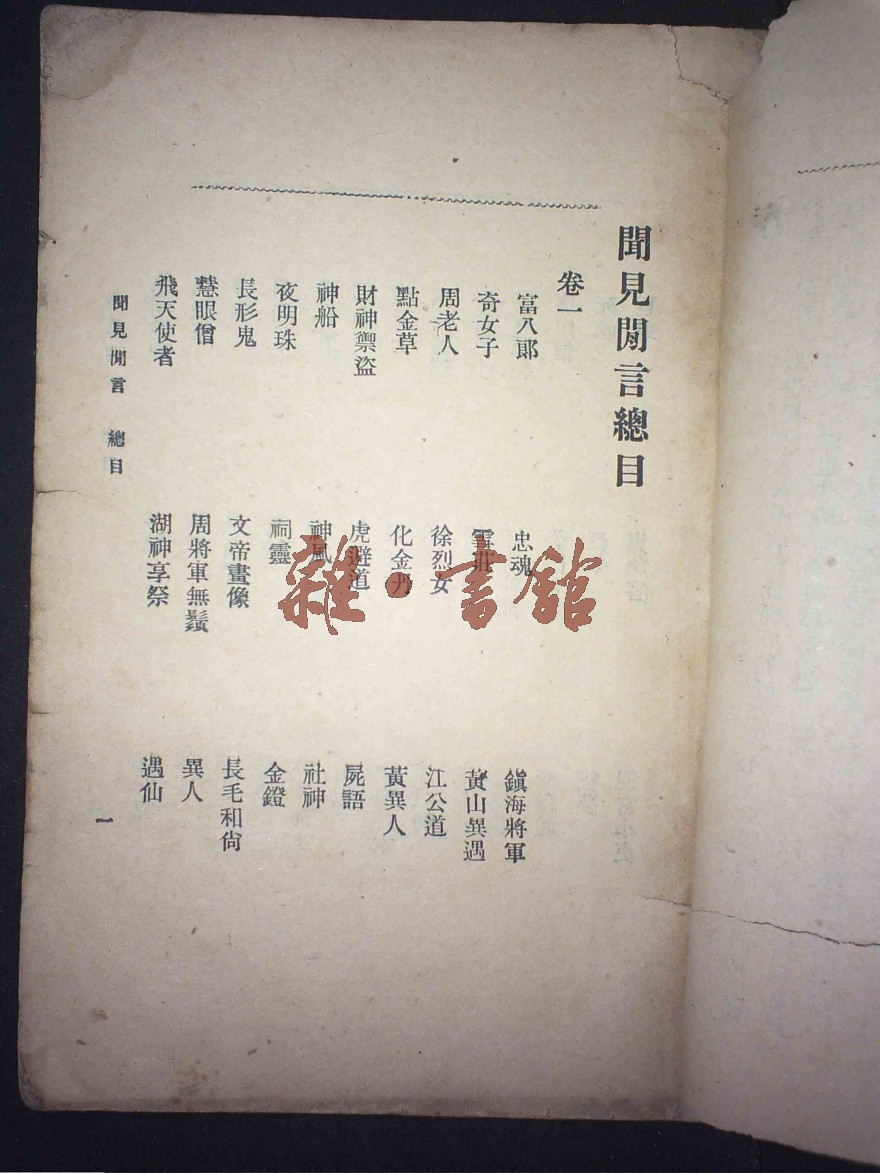 聞見閒言總目
卷一
富八郎 忠魂 鎮海將軍
奇女子 黃山異遇
周老人 徐烈女 江公道
點金草 化金丹 黃異人
財神禦盜 虎避道 屍語
神船 神風 社神
夜明珠 祠靈 金鐙
長形鬼 文帝畫像 長毛和尙
慧眼僧 周將軍無鬚 異人
飛天使者 湖神享祭 遇仙
聞見閒言 總目 一
雜·書館